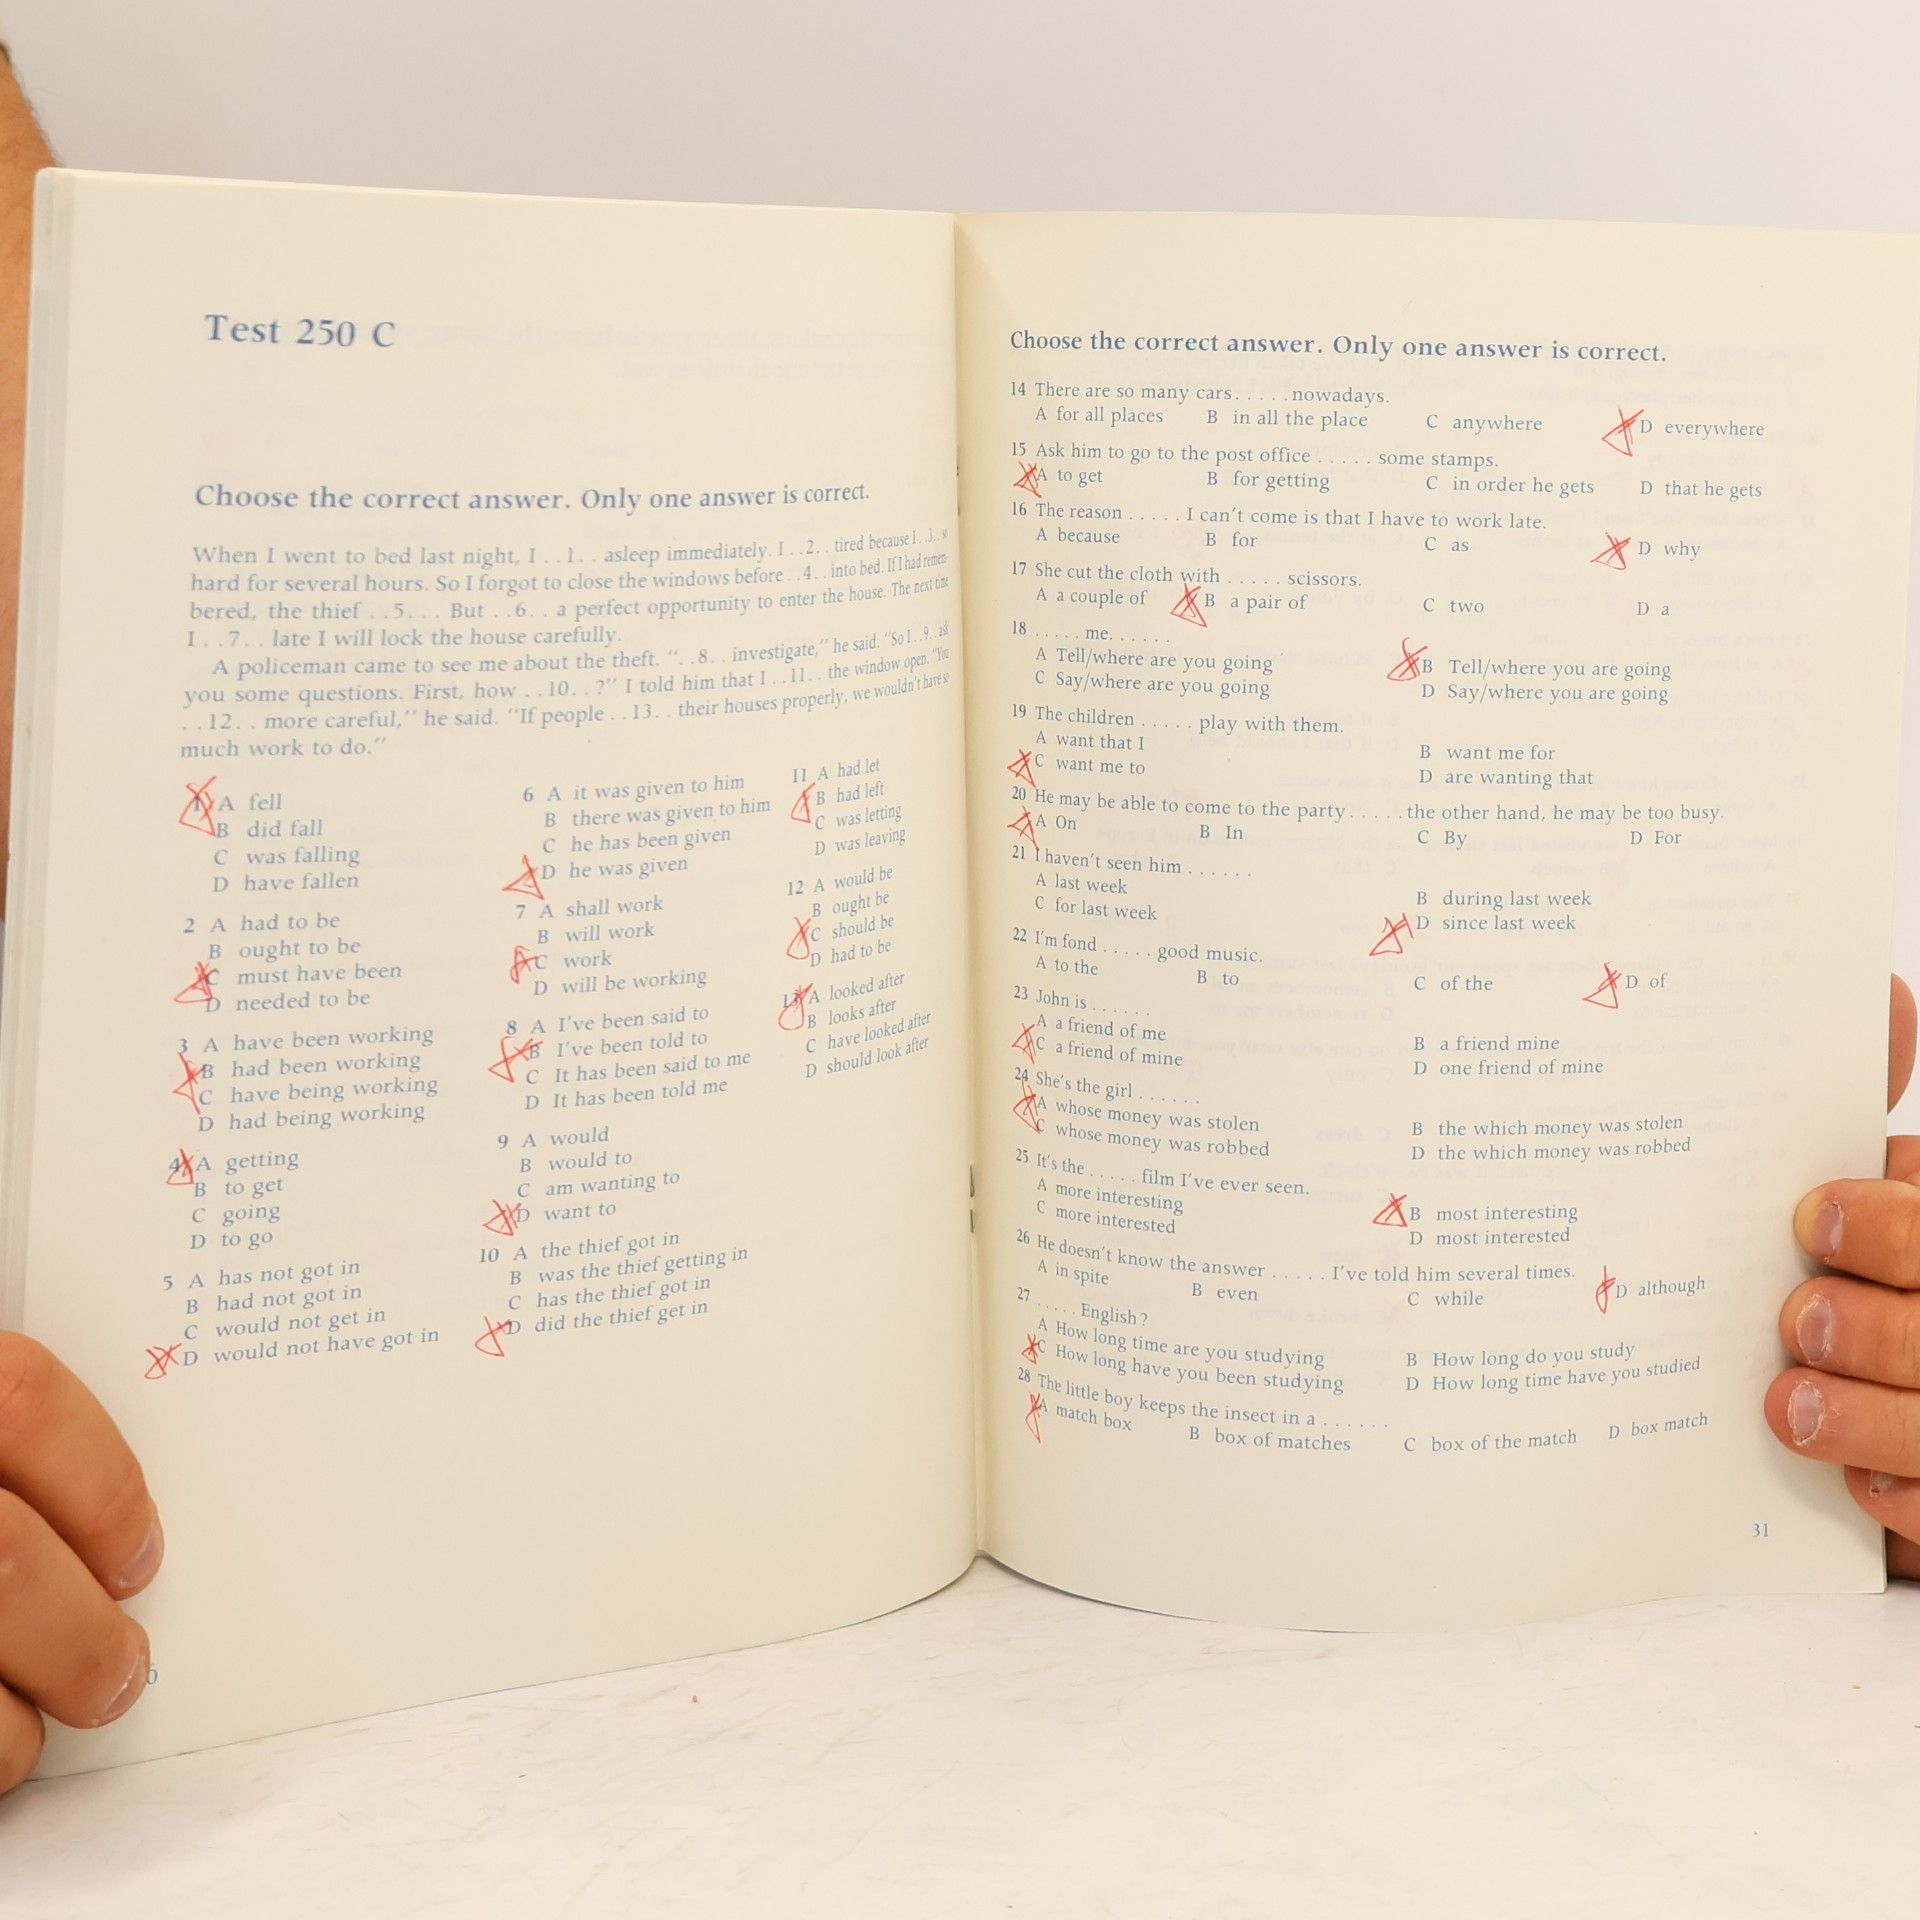 Test 250 C
Choose the correct answer. Only one answer is correct.
When I went to bed last night, I . .1. . asleep immediately. I . .2. . tired because I . .3. . so
hard for several hours. So I forgot to close the windows before . .4. . into bed. If I had remem-
bered, the thief . .5. . . But . .6. . a perfect opportunity to enter the house. The next time
I . .7. . late I will lock the house carefully.
A policeman came to see me about the theft. “. .8. . investigate,” he said. “So I . .9. . ask
you some questions. First, how . .10. . ?” I told him that I . .11. . the window open. “You
. .12. . more careful,” he said. “If people . .13. . their houses properly, we wouldn’t have so
much work to do.”
1 A fell
B did fall
C was falling
D have fallen
2 A had to be
B ought to be
C must have been
D needed to be
3 A have been working
B had been working
C have being working
D had being working
4 A getting
B to get
C going
D to go
5 A has not got in
B had not got in
C would not get in
D would not have got in
6 A it was given to him
B there was given to him
C he has been given
D he was given
7 A shall work
B will work
C work
D will be working
8 A I’ve been said to
B I’ve been told to
C It has been said to me
D It has been told me
9 A would
B would to
C am wanting to
D want to
10 A the thief got in
B was the thief getting in
C has the thief got in
D did the thief get in
11 A had let
B had left
C was letting
D was leaving
12 A would be
B ought be
C should be
D had to be
13 A looked after
B looks after
C have looked after
D should look after
0
Choose the correct answer. Only one answer is correct.
14 There are so many cars . . . . . nowadays.
A for all places B in all the place C anywhere D everywhere
15 Ask him to go to the post office . . . . . some stamps.
A to get B for getting C in order he gets D that he gets
16 The reason . . . . . I can’t come is that I have to work late.
A because B for C as D why
17 She cut the cloth with . . . . . scissors.
A a couple of B a pair of C two D a
18 . . . . . me. . . . . .
A Tell/where are you going B Tell/where you are going
C Say/where are you going D Say/where you are going
19 The children . . . . . play with them.
A want that I B want me for
C want me to D are wanting that
20 He may be able to come to the party . . . . . the other hand, he may be too busy.
A On B In C By D For
21 I haven’t seen him . . . . . .
A last week B during last week
C for last week D since last week
22 I’m fond . . . . . good music.
A to the B to C of the D of
23 John is . . . . . .
A a friend of me B a friend mine
C a friend of mine D one friend of mine
24 She’s the girl . . . . . .
A whose money was stolen B the which money was stolen
C whose money was robbed D the which money was robbed
25 It’s the . . . . . film I’ve ever seen.
A more interesting B most interesting
C more interested D most interested
26 He doesn’t know the answer . . . . . I’ve told him several times.
A in spite B even C while D although
27 . . . . . English?
A How long time are you studying B How long do you study
C How long have you been studying D How long time have you studied
28 The little boy keeps the insect in a . . . . . .
A match box B box of matches C box of the match D box match
31